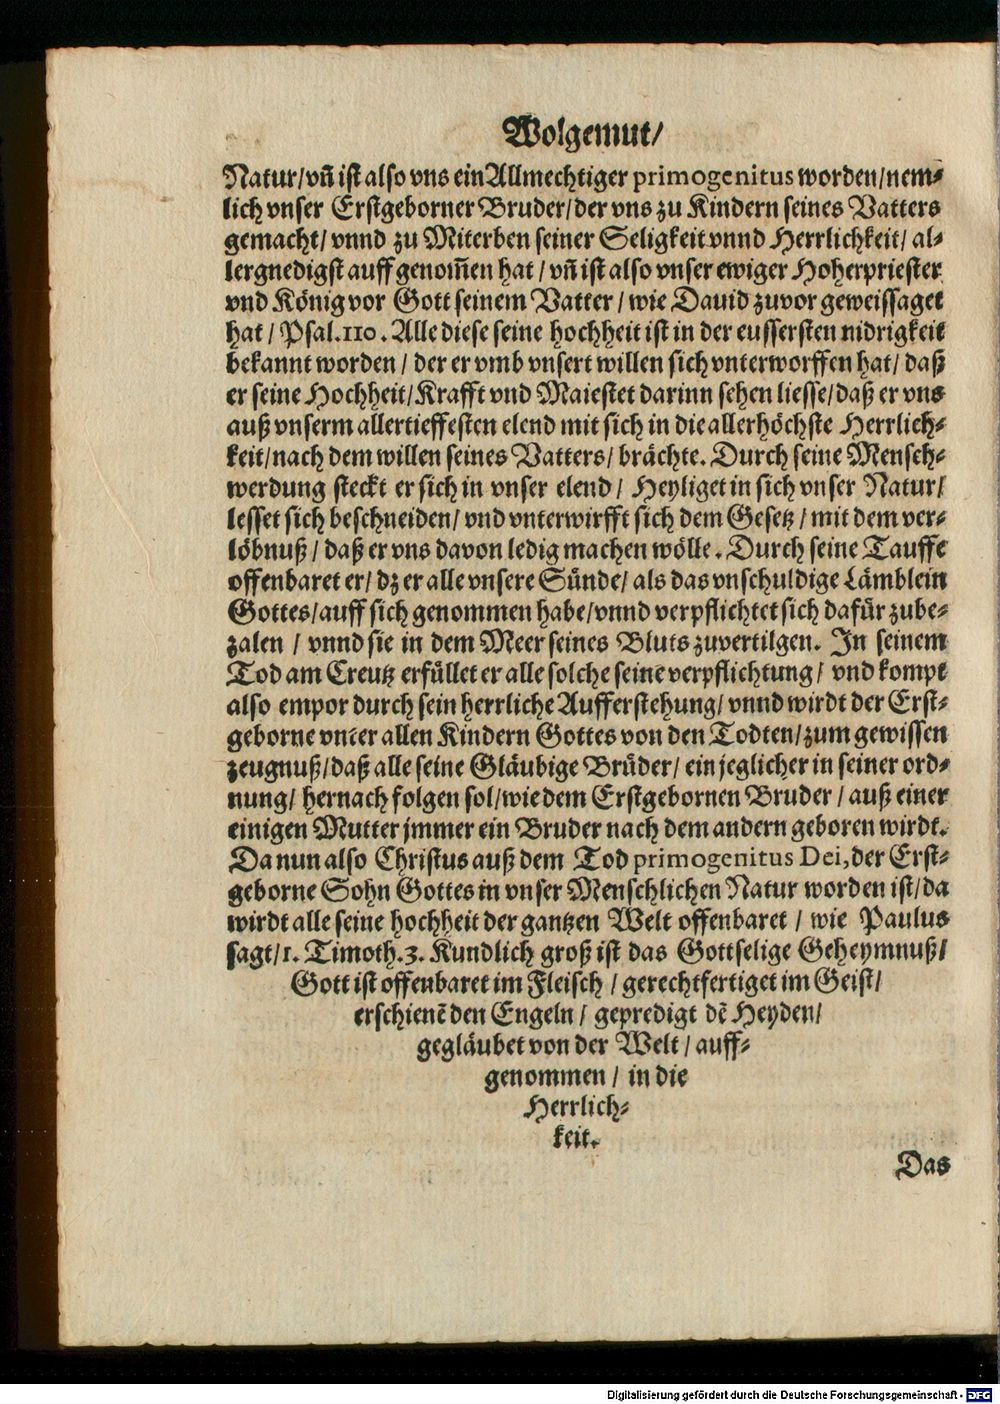 Wolgemut/
Natur/vn̄ ist also vns ein Allmechtiger primogenitus worden/nem-
lich vnser Erstgeborner Bruder/der vns zu Kindern seines Vatters
gemacht/ vnnd zu Miterben seiner Seligkeit vnnd Herrlichkeit/ al-
lergnedigst auff genom̄en hat / vn̄ ist also vnser ewiger Hoherpriester
vnd König vor Gott seinem Vatter / wie Dauid zuvor geweissaget
hat / Psal.110. Alle diese seine hochheit ist in der eussersten nidrigkeit
bekannt worden / der er vmb vnsert willen sich vnterworffen hat/ daß
er seine Hochheit/Krafft vnd Maiestet darinn sehen liesse/daß er vns
auß vnserm allertieffesten elend mit sich in die allerhöchste Herrlich-
keit/nach dem willen seines Vatters/ brächte. Durch seine Mensch-
werdung steckt er sich in vnser elend / Heyliget in sich vnser Natur/
lesset sich beschneiden/ vnd vnterwirfft sich dem Gesetz / mit dem ver-
löbnuß / daß er vns davon ledig machen wölle. Durch seine Tauffe
offenbaret er/ dz er alle vnsere Sünde/ als das vnschuldige Lämblein
Gottes/auff sich genommen habe/vnnd verpflichtet sich dafür zube-
zalen / vnnd sie in dem Meer seines Bluts zuvertilgen. In seinem
Tod am Creutz erfüllet er alle solche seine verpflichtung/ vnd kompt
also empor durch sein herrliche Aufferstehung/ vnnd wirdt der Erst-
geborne vnter allen Kindern Gottes von den Todten/zum gewissen
zeugnuß/daß alle seine Gläubige Brüder/ ein jeglicher in seiner ord-
nung/ hernach folgen sol/wie dem Erstgebornen Bruder / auß einer
einigen Mutter jmmer ein Bruder nach dem andern geboren wirdt.
Da nun also Christus auß dem Tod primogenitus Dei, der Erst-
geborne Sohn Gottes in vnser Menschlichen Natur worden ist/da
wirdt alle seine hochheit der gantzen Welt offenbaret / wie Paulus
sagt/1. Timoth.3. Kundlich groß ist das Gottselige Geheymnuß/
Gott ist offenbaret im Fleisch / gerechtfertiget im Geist/
erschienē den Engeln / gepredigt dē Heyden/
gegläubet von der Welt / auff-
genommen / in die
Herrlich-
keit.
Das
Digitalisierung gefördert durch die Deutsche Forschungsgemeinschaft - DFG